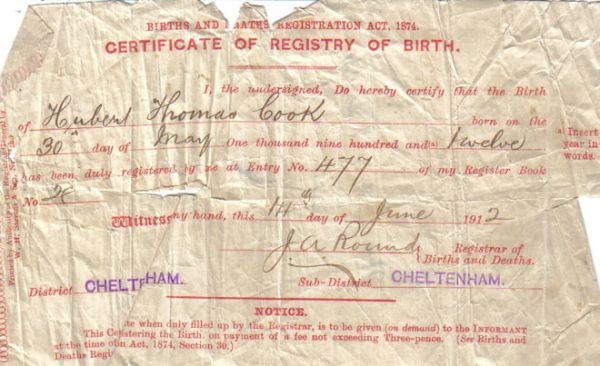 BIRTHS AND DEATHS REGISTRATION ACT, 1874.
CERTIFICATE OF REGISTRY OF BIRTH.
I, the undersigned, Do hereby certify that the Birth
of Hubert Thomas Cook born on the
30th day of May One thousand nine hundred and (a) twelve
has been duly registered by me at Entry No. 477 of my Register Book
No.
Witness my hand, this 14th day of June 1912
J. A. Round Registrar of
Births and Deaths.
District CHELTENHAM. Sub-District CHELTENHAM.
NOTICE.
te when duly filled up by the Registrar, is to be given (on demand) to the INFORMANT
This stering the Birth, on payment of a fee not exceeding Three-pence. (See Births and
at the time on Act, 1874, Section 30.)
Deaths Regis
(a) Insert
year in
words.